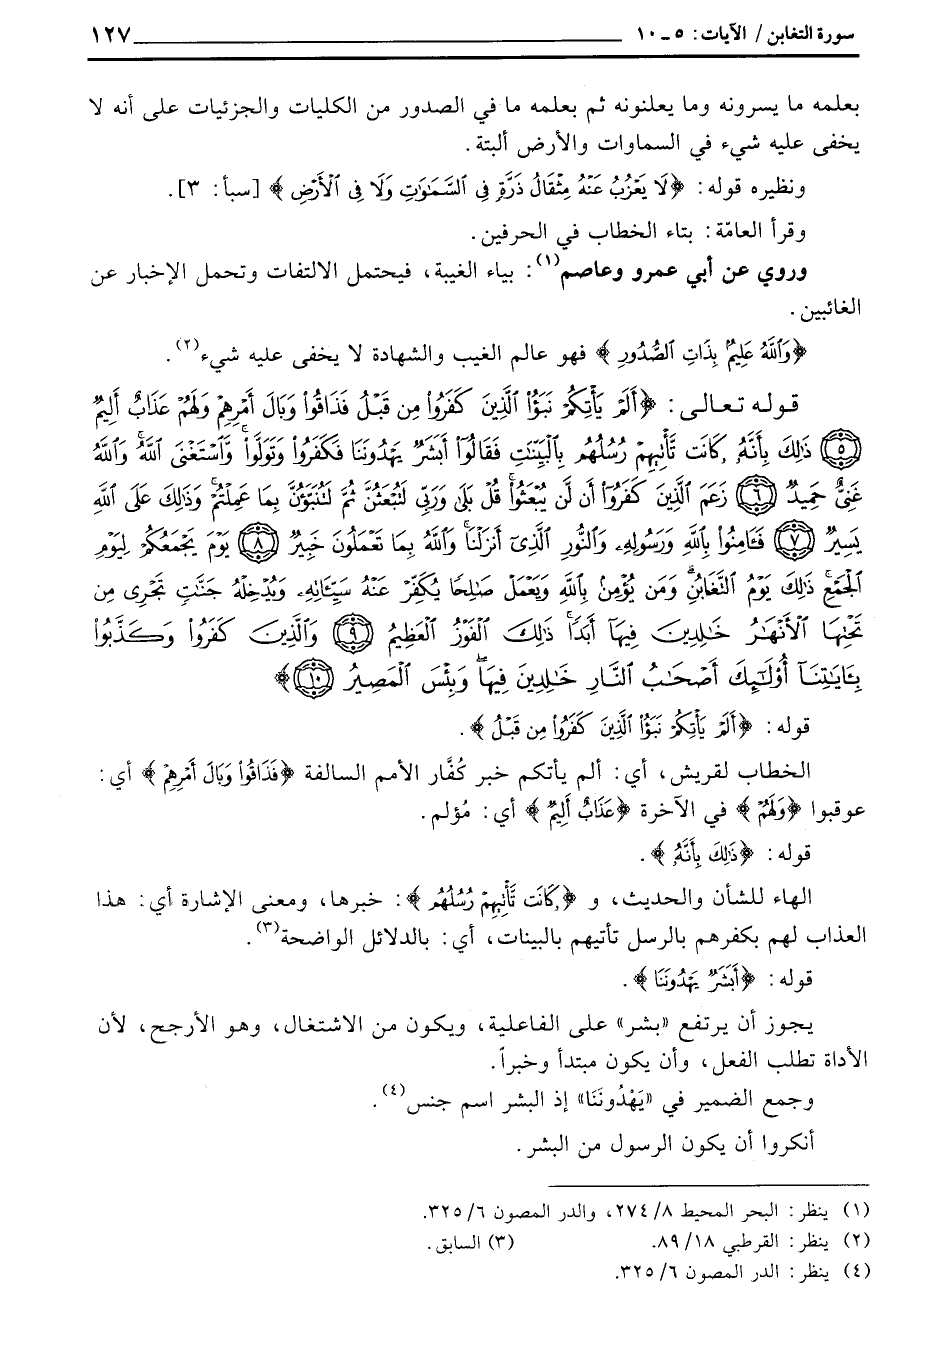 سورة التغابن / الآيات: ٥ ـ ١٠ ١٢٧
بعلمه ما يسرونه وما يعلنونه ثم بعلمه ما في الصدور من الكليات والجزئيات على أنه لا
يخفى عليه شيء في السماوات والأرض ألبتة.
ونظيره قوله: ﴿لَا يَعْزُبُ عَنْهُ مِثْقَالُ ذَرَّةٍ فِي السَّمَٰوَٰتِ وَلَا فِي الْأَرْضِ﴾ [سبأ: ٣].
وقرأ العامّة: بتاء الخطاب في الحرفين.
وروي عن أبي عمرو وعاصم(١): بياء الغيبة، فيحتمل الالتفات وتحمل الإخبار عن
الغائبين.
﴿وَاللَّهُ عَلِيمٌ بِذَاتِ الصُّدُورِ﴾ فهو عالم الغيب والشهادة لا يخفى عليه شيء(٢).
قوله تعالى: ﴿أَلَمْ يَأْتِكُمْ نَبَؤُا۟ الَّذِينَ كَفَرُوا۟ مِن قَبْلُ فَذَاقُوا۟ وَبَالَ أَمْرِهِمْ وَلَهُمْ عَذَابٌ أَلِيمٌ
(٥) ذَٰلِكَ بِأَنَّهُۥ كَانَت تَّأْتِيهِمْ رُسُلُهُم بِالْبَيِّنَٰتِ فَقَالُوٓا۟ أَبَشَرٌ يَهْدُونَنَا فَكَفَرُوا۟ وَتَوَلَّوا۟ ۚ وَّاسْتَغْنَى اللَّهُ ۚ وَاللَّهُ
غَنِيٌّ حَمِيدٌ (٦) زَعَمَ الَّذِينَ كَفَرُوٓا۟ أَن لَّن يُبْعَثُوا۟ ۚ قُلْ بَلَىٰ وَرَبِّي لَتُبْعَثُنَّ ثُمَّ لَتُنَبَّؤُنَّ بِمَا عَمِلْتُمْ ۚ وَذَٰلِكَ عَلَى اللَّهِ
يَسِيرٌ (٧) فَـَٔامِنُوا۟ بِاللَّهِ وَرَسُولِهِۦ وَالنُّورِ الَّذِيٓ أَنزَلْنَا ۚ وَاللَّهُ بِمَا تَعْمَلُونَ خَبِيرٌ (٨) يَوْمَ يَجْمَعُكُمْ لِيَوْمِ
الْجَمْعِ ۖ ذَٰلِكَ يَوْمُ التَّغَابُنِ ۗ وَمَن يُؤْمِنۢ بِاللَّهِ وَيَعْمَلْ صَٰلِحًا يُكَفِّرْ عَنْهُ سَيِّـَٔاتِهِۦ وَيُدْخِلْهُ جَنَّٰتٍ تَجْرِي مِن
تَحْتِهَا الْأَنْهَٰرُ خَٰلِدِينَ فِيهَآ أَبَدًا ۚ ذَٰلِكَ الْفَوْزُ الْعَظِيمُ (٩) وَالَّذِينَ كَفَرُوا۟ وَكَذَّبُوا۟
بِـَٔايَٰتِنَآ أُو۟لَٰٓئِكَ أَصْحَٰبُ النَّارِ خَٰلِدِينَ فِيهَا ۖ وَبِئْسَ الْمَصِيرُ (١٠)﴾
قوله: ﴿أَلَمْ يَأْتِكُمْ نَبَؤُا۟ الَّذِينَ كَفَرُوا۟ مِن قَبْلُ﴾.
الخطاب لقريش، أي: ألم يأتكم خبر كُفَّار الأمم السالفة ﴿فَذَاقُوا۟ وَبَالَ أَمْرِهِمْ﴾ أي:
عوقبوا ﴿وَلَهُمْ﴾ في الآخرة ﴿عَذَابٌ أَلِيمٌ﴾ أي: مُؤلم.
قوله: ﴿ذَٰلِكَ بِأَنَّهُ﴾.
الهاء للشأن والحديث، و ﴿كَانَت تَّأْتِيهِمْ رُسُلُهُم﴾: خبرها، ومعنى الإشارة أي: هذا
العذاب لهم بكفرهم بالرسل تأتيهم بالبينات، أي: بالدلائل الواضحة(٣).
قوله: ﴿أَبَشَرٌ يَهْدُونَنَا﴾.
يجوز أن يرتفع «بشر» على الفاعلية، ويكون من الاشتغال، وهو الأرجح، لأن
الأداة تطلب الفعل، وأن يكون مبتدأ وخبراً.
وجمع الضمير في «يَهْدُونَنَا» إذ البشر اسم جنس(٤).
أنكروا أن يكون الرسول من البشر.
(١) ينظر: البحر المحيط ٨/ ٢٧٤، والدر المصون ٦/ ٣٢٥.
(٢) ينظر: القرطبي ١٨/ ٨٩. (٣) السابق.
(٤) ينظر: الدر المصون ٦/ ٣٢٥.